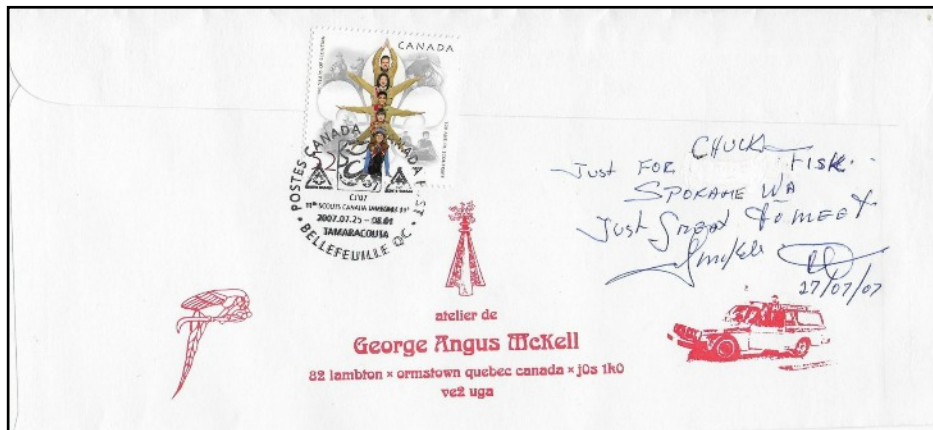 CANADA
52
POSTES CANADA • CANADA POST
CJ'07
11th SCOUTS CANADA JAMBOREE 11e
2007.07.25 - 08.01
TAMARACOUTA
BELLEFEUILLE QC
Just FOR CHUCK FISK
SPOKANE WA
Just Great to MEET
27/07/07
atelier de
George Angus McKell
82 lambton × ormstown quebec canada × j0s 1k0
ve2 uga